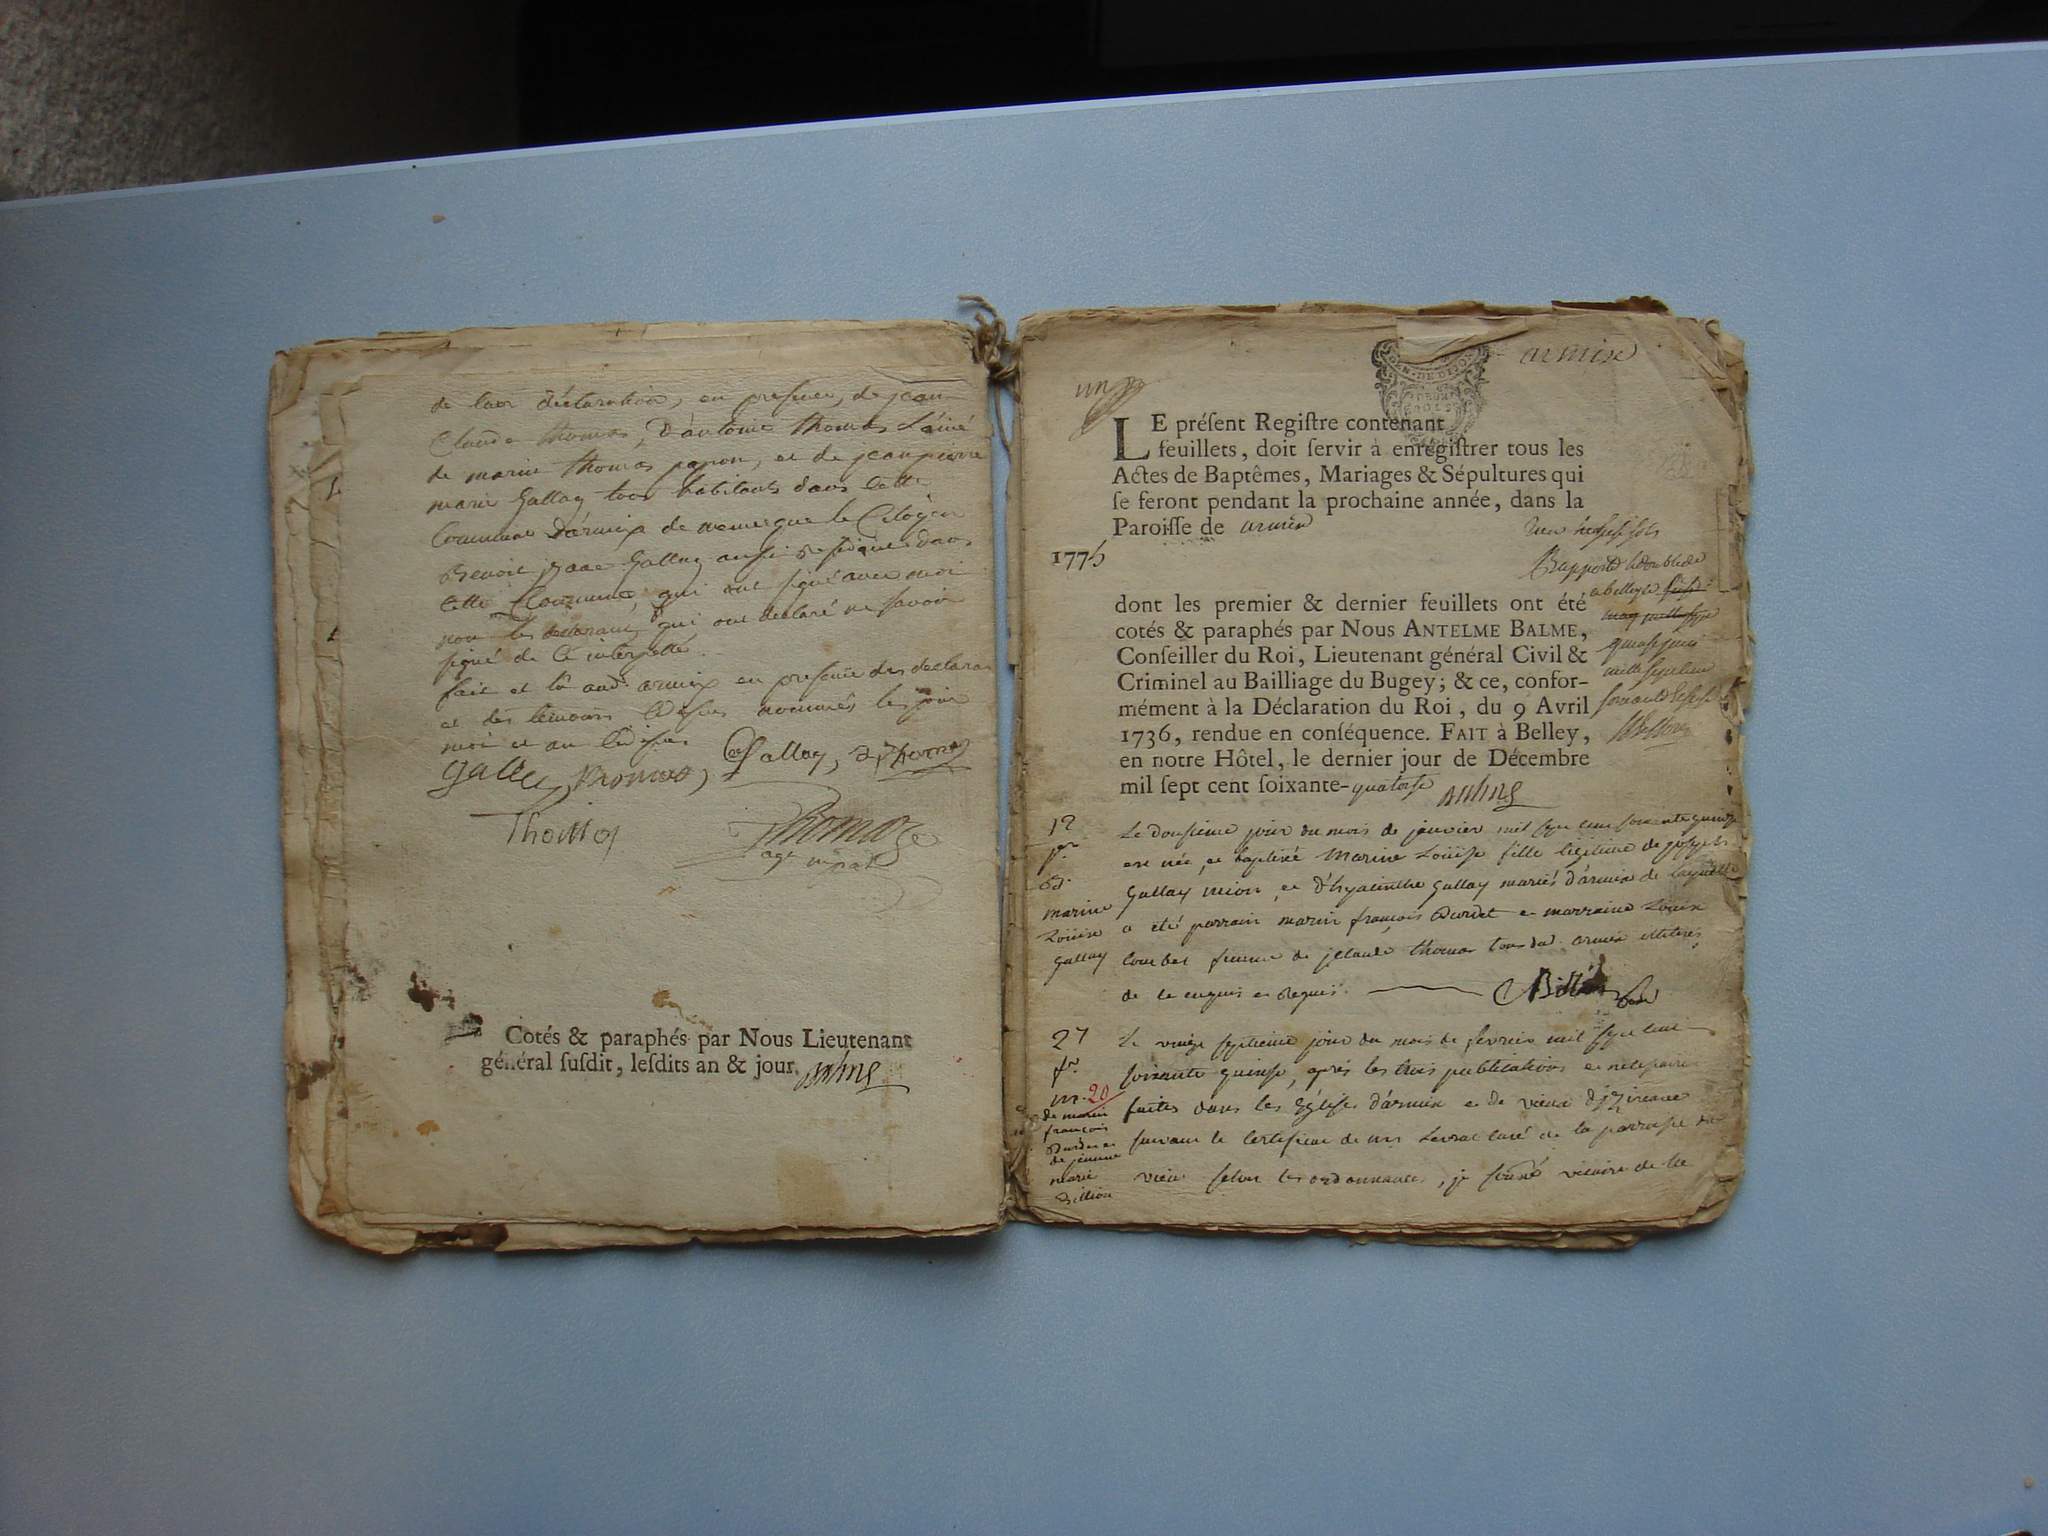 de leur déclaration, en presence, de jean
Claude thomas, d'antoine thomas L'ainé
de marin thomas papon, et de jean pierre
marie Gallay tous habitants dans cette
Commune d'armix de meme que le Citoyen
Benoit Gallay aussi dans
cette Commune, qui ont signé avec moi
non les declarants qui ont declaré ne savoir
signé de ce interpellé
fait et lû aud. armix en presence des declarants
et des temoins nommés les jour
mois et an
Gallay, thomas, Gallay, thomas
Thomas
Thomas
age
Cotés & paraphés par Nous Lieutenant
général ſuſdit, leſdits an & jour.
armix
un
GEN. DE DIJON
LE préſent Regiſtre contenant
feuillets, doit ſervir à enregiſtrer tous les
Actes de Baptêmes, Mariages & Sépultures qui
ſe feront pendant la prochaine année, dans la
Paroiſſe de armix
1775
Rapporté le double
a belley le
quinse
mille sept cent
soixante
dont les premier & dernier feuillets ont été
cotés & paraphés par Nous ANTELME BALME,
Conſeiller du Roi, Lieutenant général Civil &
Criminel au Bailliage du Bugey; & ce, confor-
mément à la Déclaration du Roi, du 9 Avril
1736, rendue en conſéquence. FAIT à Belley,
en notre Hôtel, le dernier jour de Décembre
mil ſept cent ſoixante-quatorse
12
jer
B.
marine
Loüise
Gallay
Le dousieme jour du mois de janvier mil sept cent soixante quinze
est née, et baptisée Marine Loüise fille legitime de joseph
Gallay mion, et d'hyacinthe Gallay mariés d'armix de laquelle
a été parrain marin françois Burdet et marraine Loüise
Combet femme de jClaude thomas tous dud. armix illiterés
de ce enquis et requis. Billion
27
fer
m. 20
de marin
françois
Burdet et
de jeanne
marie
Billion
Le vingt septieme jour du mois de fevrier mil sept cent
soixante quinse, après les trois publications necessaires
faites dans les Eglises d'armix et de vieux d'izenave
suivant le Certificat de mr Levrat curé de la parroisse de
vieu selon les ordonnances, je soussigné vicaire de la